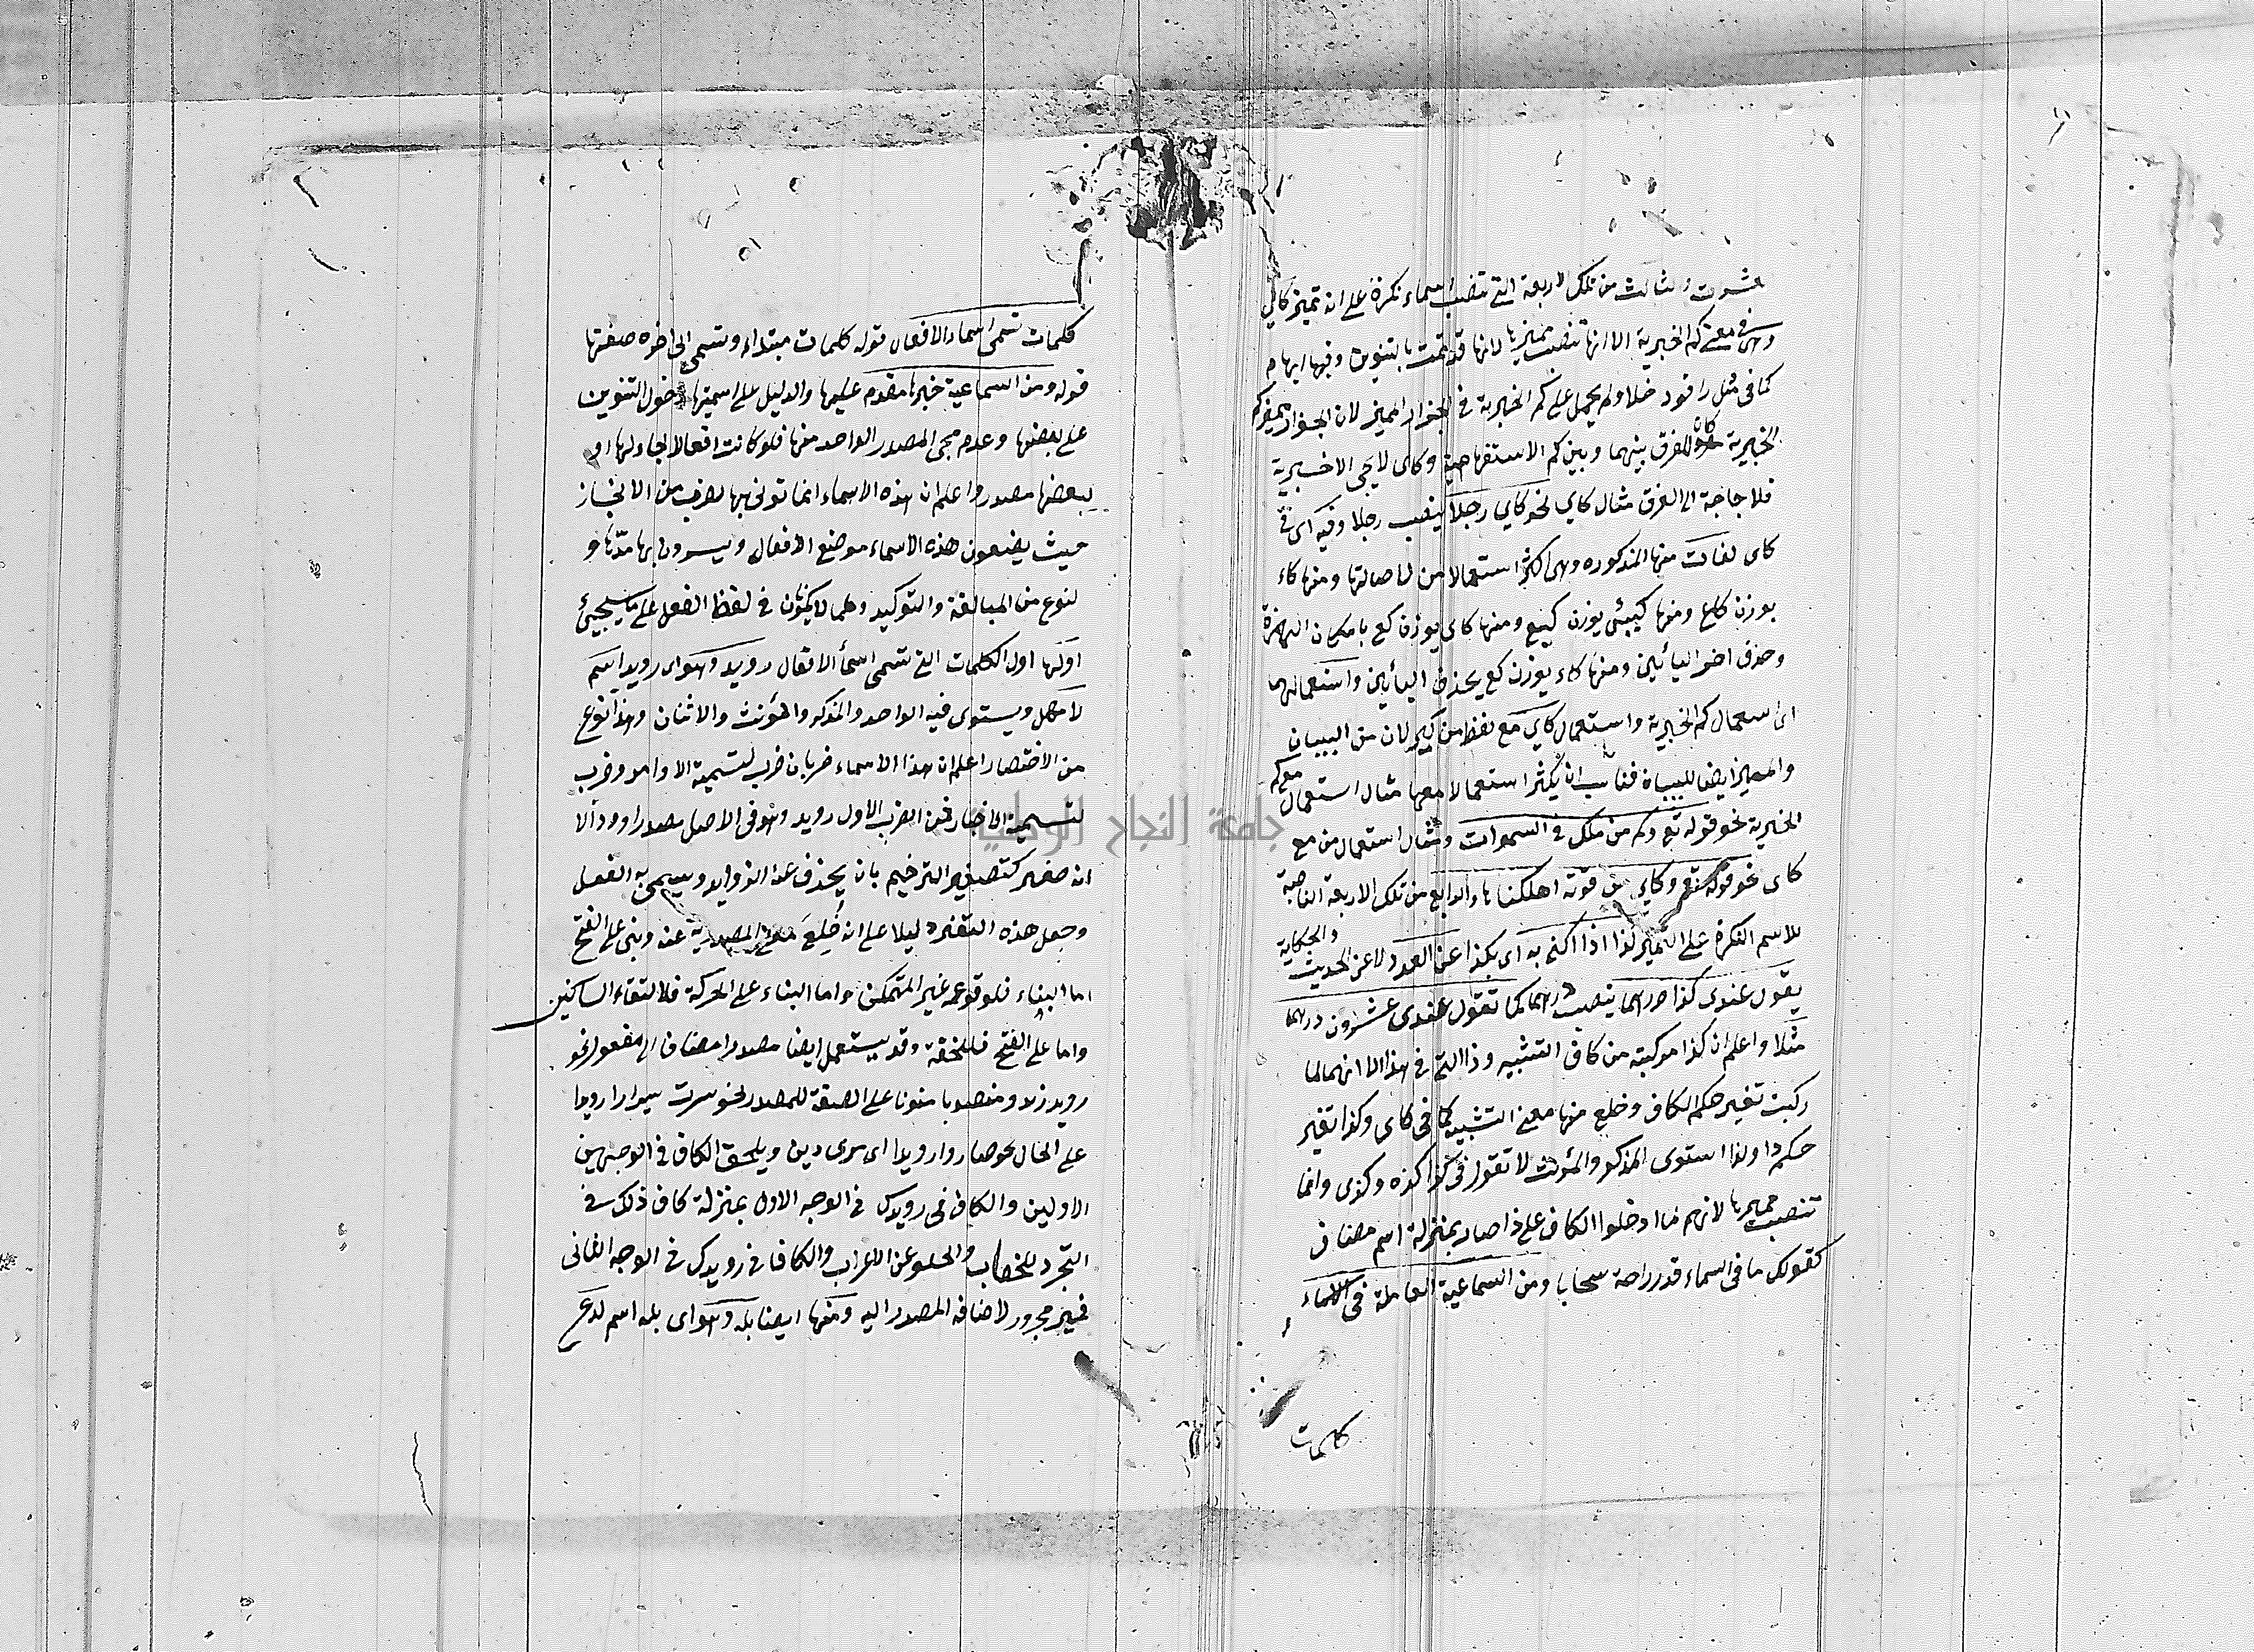 عشرون والثالث من تلك الاربعة التي تنصب اسماء نكرة على انه تميز كاي
وهي في معنى كم الخبرية الا انها تنصب مميزها لانها قد تمت بالتنوين وفيها ابهام
كما في مثل راقود خلا ولم يحمل على كم الخبرية في انجرار المميز لان انجرار مميز كم
الخبرية كان للفرق بينهما وبين كم الاستفهامية وكاى لا يجى الا خبرية
فلا حاجة الى الفرق مثال كاي نحو كاي رجلا ينصب رجلا وفيه اى في
كاى لغات منها المذكوره وهى اكثر استعمالا من لاصالتها ومنها كاء
بوزن كاع ومنها كييئى بوزن كييع ومنها كاى بوزن كعى باسكان الهمزة
وحذف اخر اليائين ومنها كاء بوزن كع بحذف اليائين واستعمالهما
اى استعمال كم الخبرية واستعمال كاي مع لفظ من كثير لان من البيان
والمميز ايضا للبيان فناسب ان يكثر استعمالا معها مثال استعمال من مع كم
الخبرية نحو قوله تع وكم من ملك في السموات ومثال استعمال من مع
كاى نحو قوله تع وكاي من قرية اهلكناها والرابع من تلك الاربعة الناصبة
للاسم النكرة على التميز كذا اذا اكنى به اى بكذا عن العدد لا عن الحديث والحكاية
يقول عندى كذا درهما ينصب درهما كما تقول عندى عشرون درهما
مثلا واعلم ان كذا مركبة من كاف التشبيه وذا التي في هذا الا انهما لما
ركبت تغير حكم الكاف وخلع منها معنى التشبيه كما في كاى وكذا تغير
حكم ذا ولذا استوى المذكر والمئونث لا تقول في كذا كذه وكذى وانما
تنصب مميزها لانهم لما ادخلوا الكاف على ذا صار بمنزلة اسم مضاف
كقولك ما في السماء قدر راحة سحابا ومن السماعية العاملة في الاسماء
كلمات
كلمات تسمى اسماء الافعال قوله كلمات مبتداء وتسمى الى اخره صفتها
قوله ومن السماعية خبرها مقدم عليها والدليل على اسميتها دخول التنوين
على بعضها وعدم مجى المصدر الواحد منها فلو كانت افعالا لجاء لها او
لبعضها مصدر واعلم ان هذه الاسماء انما توتى بها لضرب من الايجاز
حيث يضعون هذه الاسماء موضع الافعال ويسدون بها مدتها و
لنوع من المبالغة والتوكيد وهما لا يكونان في لفظ الفعل على ما سيجيئ
اولها اول الكلمات التي تسمى اسماء الافعال رويد وهو اى رويد اسم
لامهل ويستوى فيه الواحد والمذكر والمؤنث والاثنان وهذا نوع
من الاختصار اعلم ان هذا الاسماء ضربان ضرب لتسمية الاوامر وضرب
لتسمية الاخبار فمن الضرب الاول رويد وهو في الاصل مصدر ارود الا
انه صغر كتصغير الترخيم بان يحذف عنه الزوايد وسمى به الفعل
وجعل هذه التغير دليلا على انه خُلِعَ معنى المصدرية عنه وبنى على الفتح
اما البناء فلوقوعه غير المتمكن واما البناء على الحركة فلالتقاء الساكنين
واما على الفتح فللخفة وقد يستعمل ايضا مصدرا مضاف الى مفعول نحو
رويد زيد ومنصوبا منونا على الصفة للمصدر نحو سرت سيرا رويدا
على الحال نحو صاروا رويدا اى مرودين ويلحق الكاف في الوجهين
الاولين والكاف في رويدك في الوجه الاول بمنزلة كاف ذلك في
التجرد للخطاب والخلو عن الاعراب والكاف في رويدك في الوجه الثانى
ضمير مجرور لاضافه المصدر اليه ومنها ايضا بله وهو اى بله اسم لدع
جامعة النجاح الوطنية